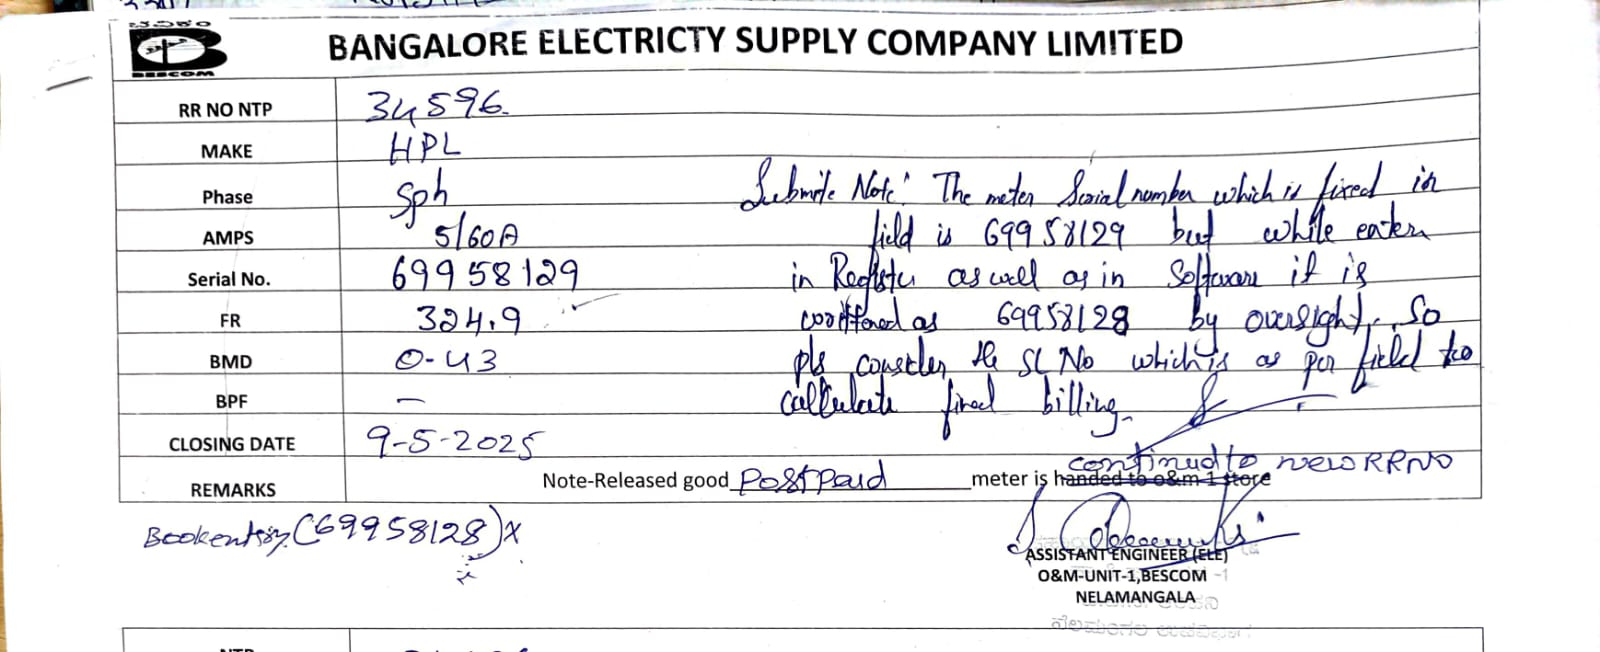 BESCOM
BANGALORE ELECTRICTY SUPPLY COMPANY LIMITED
RR NO NTP 34596.
MAKE HPL
Phase Sph
AMPS 5/60A
Serial No. 69958129
FR 324.9
BMD 0-43
BPF –
CLOSING DATE 9-5-2025
Submite Note: The meter Serial number which is fixed in
field is 69958129 but while enter
in Register as well as in Software it is
as 69958128 by oversight, So
pls consider the SL No which is as per field to
calculate final billing.
REMARKS Note-Released good Postpaid meter is handed to o&m-1 store
continued to new RRNO
Bookentry (69958128) x
ASSISTANT ENGINEER (ELE)
O&M-UNIT-1,BESCOM
NELAMANGALA
NTP